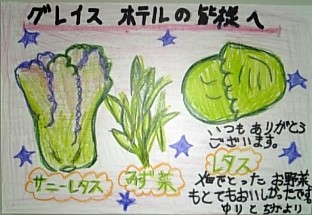 グレイス ホテルの皆様へ
サニーレタス
みず菜
レタス
いつも ありがとう
ございます。
畑でとった お野菜
もとてもおいしかったです
ゆり と ちかより